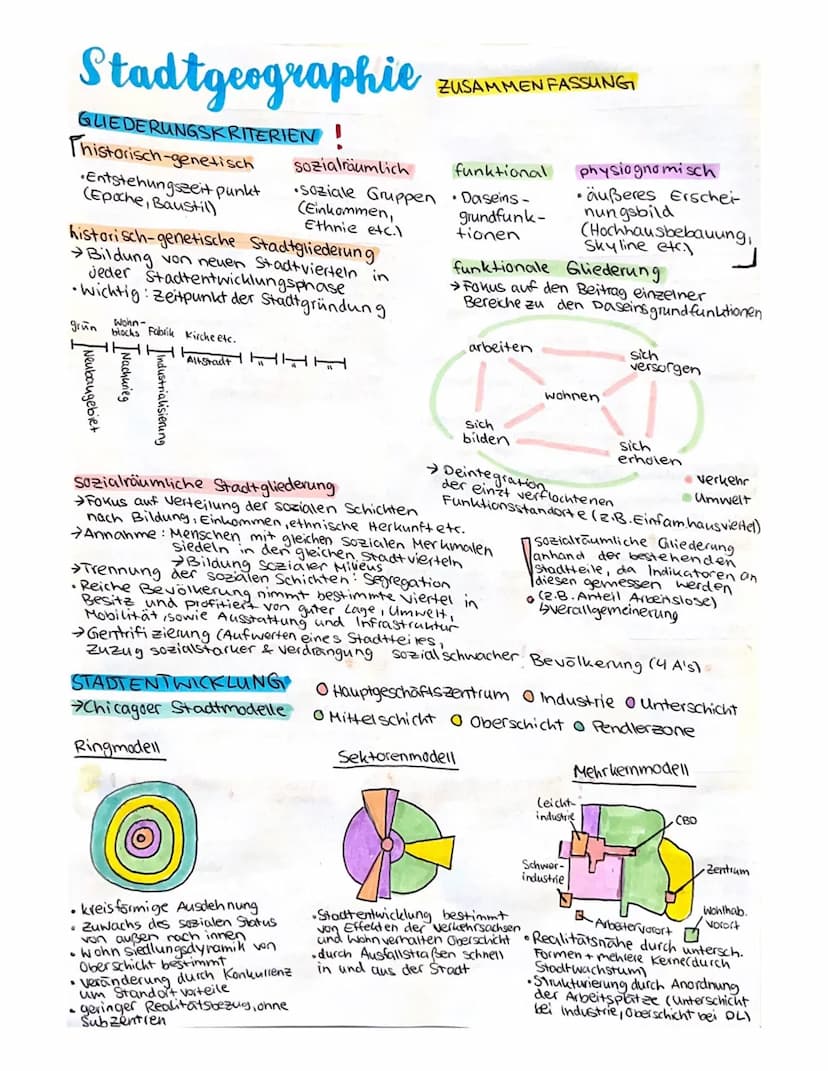 Stadtgeographie ZUSAMMENFASSUNG
GLIEDERUNGSKRITERIEN !
historisch-genetisch
•Entstehungszeitpunkt
(Epoche, Baustil)
sozialräumlich
•soziale Gruppen
(Einkommen,
Ethnie etc.)
funktional
• Daseins-
grundfunk-
tionen
physiognomisch
•äußeres Erschei-
nungsbild
(Hochhausbebauung,
Skyline etc.)
historisch-genetische Stadtgliederung
→ Bildung von neuen Stadtvierteln in
jeder Stadtentwicklungsphase
• Wichtig: Zeitpunkt der Stadtgründung
grün
Wohn-
blocks
Fabrik
Kirche etc.
Neubaugebiet
Nachkrieg
Industrialisierung
Altstadt
"
"
"
funktionale Gliederung
→ Fokus auf den Beitrag einzelner
Bereiche zu den Daseinsgrundfunktionen
arbeiten
sich
versorgen
wohnen
sich
bilden
sich
erholen
• Verkehr
• Umwelt
→ Deintegration
der einzt verflochtenen
Funktionsstandorte (z.B. Einfamhausviertel)
sozialräumliche Stadtgliederung
→Fokus auf Verteilung der sozialen Schichten
nach Bildung, Einkommen, ethnische Herkunft etc.
→Annahme: Menschen mit gleichen sozialen Merkmalen
siedeln in den gleichen Stadtvierteln
→Bildung sozialer Milieus
→Trennung der sozialen Schichten: Segregation
• Reiche Bevölkerung nimmt bestimmte Viertel in
Besitz und profitiert von guter Lage, Umwelt,
Mobilität, sowie Ausstattung und Infrastruktur
→ Gentrifizierung (Aufwerten eines Stadtteiles,
Zuzug sozialstarker & Verdrängung sozialschwacher Bevölkerung (4 A's)
! sozialräumliche Gliederung
anhand der bestehenden
Stadtteile, da Indikatoren an
diesen gemessen werden
(z.B. Anteil Arbeitslose)
↳Verallgemeinerung
STADTENTWICKLUNG
→Chicagoer Stadtmodelle
Hauptgeschäftszentrum Industrie Unterschicht
Mittelschicht Oberschicht Pendlerzone
Ringmodell
• kreisförmige Ausdehnung
• Zuwachs des sozialen Status
von außen nach innen
• Wohnsiedlungsdynamik von
Oberschicht bestimmt
• Veränderung durch Konkurrenz
um Standortvorteile
• geringer Realitätsbezug, ohne
Subzentren
Sektorenmodell
•Stadtentwicklung bestimmt
von Effekten der Verkehrsachsen
und Wohnverhalten Oberschicht
•durch Ausfallstraßen schnell
in und aus der Stadt
Mehrkernmodell
Leicht-
industrie
CBD
Schwer-
industrie
Zentrum
Arbeitervorort
Wohlhab.
Vorort
•Realitätsnähe durch untersch.
Formen + mehrere Kerne (durch
Stadtwachstum)
•Strukturierung durch Anordnung
der Arbeitsplätze (Unterschicht
bei Industrie, Oberschicht bei DL)